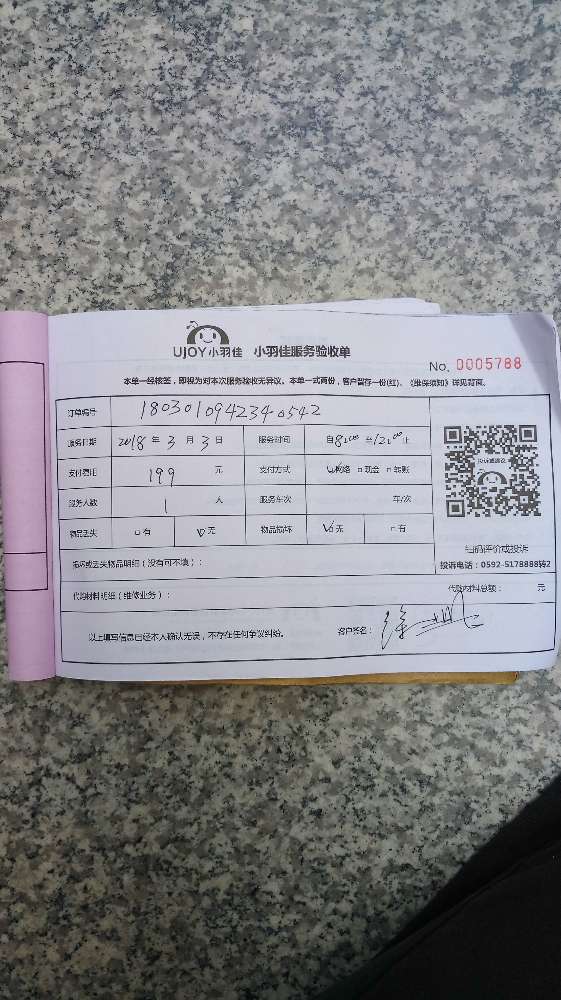 UJOY小羽佳 小羽佳服务验收单
No. 0005788
本单一经核签，即视为对本次服务验收无异议。本单一式两份，客户留存一份(红)。《维保须知》详见背面。
订单编号 180301094234-0542
服务日期 2018 年 3 月 3 日 服务时间 自 8:00 至 12:00 止
支付费用 199 元 支付方式 ☑网络 □现金 □转账
服务人数 1 人 服务车次 车/次
物品丢失 □有 ☑无 物品损坏 ☑无 □有
投诉或建议
扫码评价或投诉
投诉电话：0592-5178888转2
损坏或丢失物品明细（没有可不填）：
代购材料明细（维修业务）： 代购材料总额： 元
以上填写信息已经本人确认无误，不存在任何争议纠纷。 客户签名：